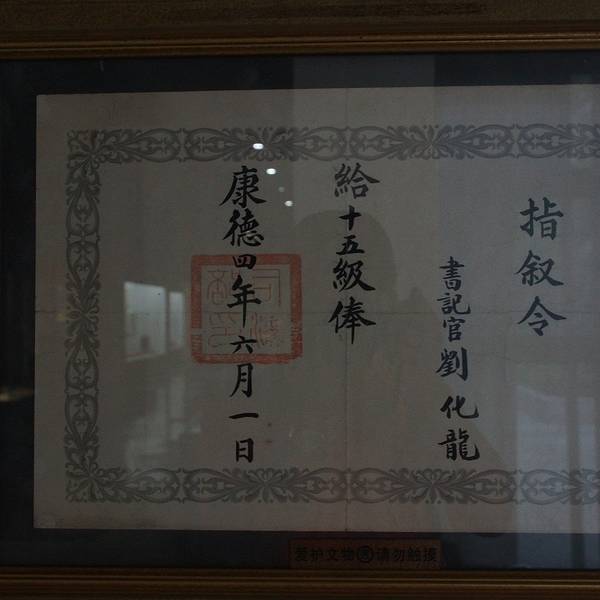 指叙令
書記官 劉化龍
給十五級俸
康德四年六月一日
爱护文物 请勿触摸